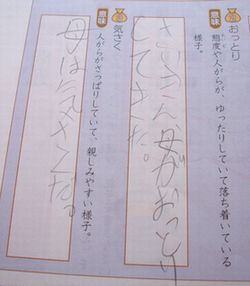 おっとり
意味
態度や人がらが、ゆったりしていて落ち着いている
様子。
さいきん母がおっとり
してきた。
気さく
意味
人がらがさっぱりしていて、親しみやすい様子。
母は気さくだ。